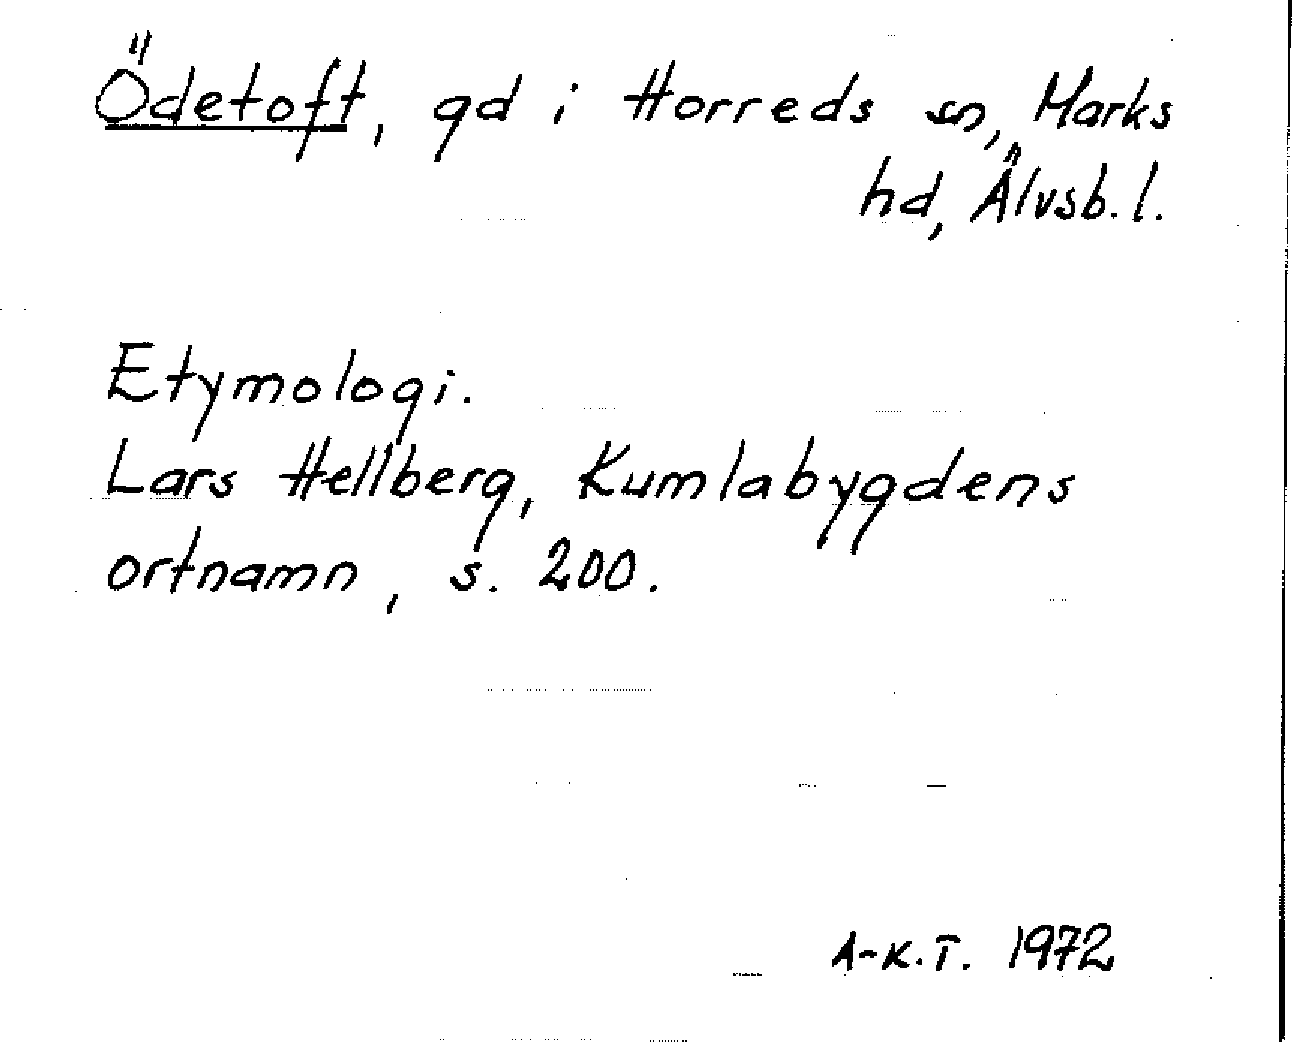 Ödetoft, gd i Horreds sn, Marks
hd, Älvsb. l.
Etymologi.
Lars Hellberg, Kumlabygdens
ortnamn, s. 200.
A-K.T. 1972